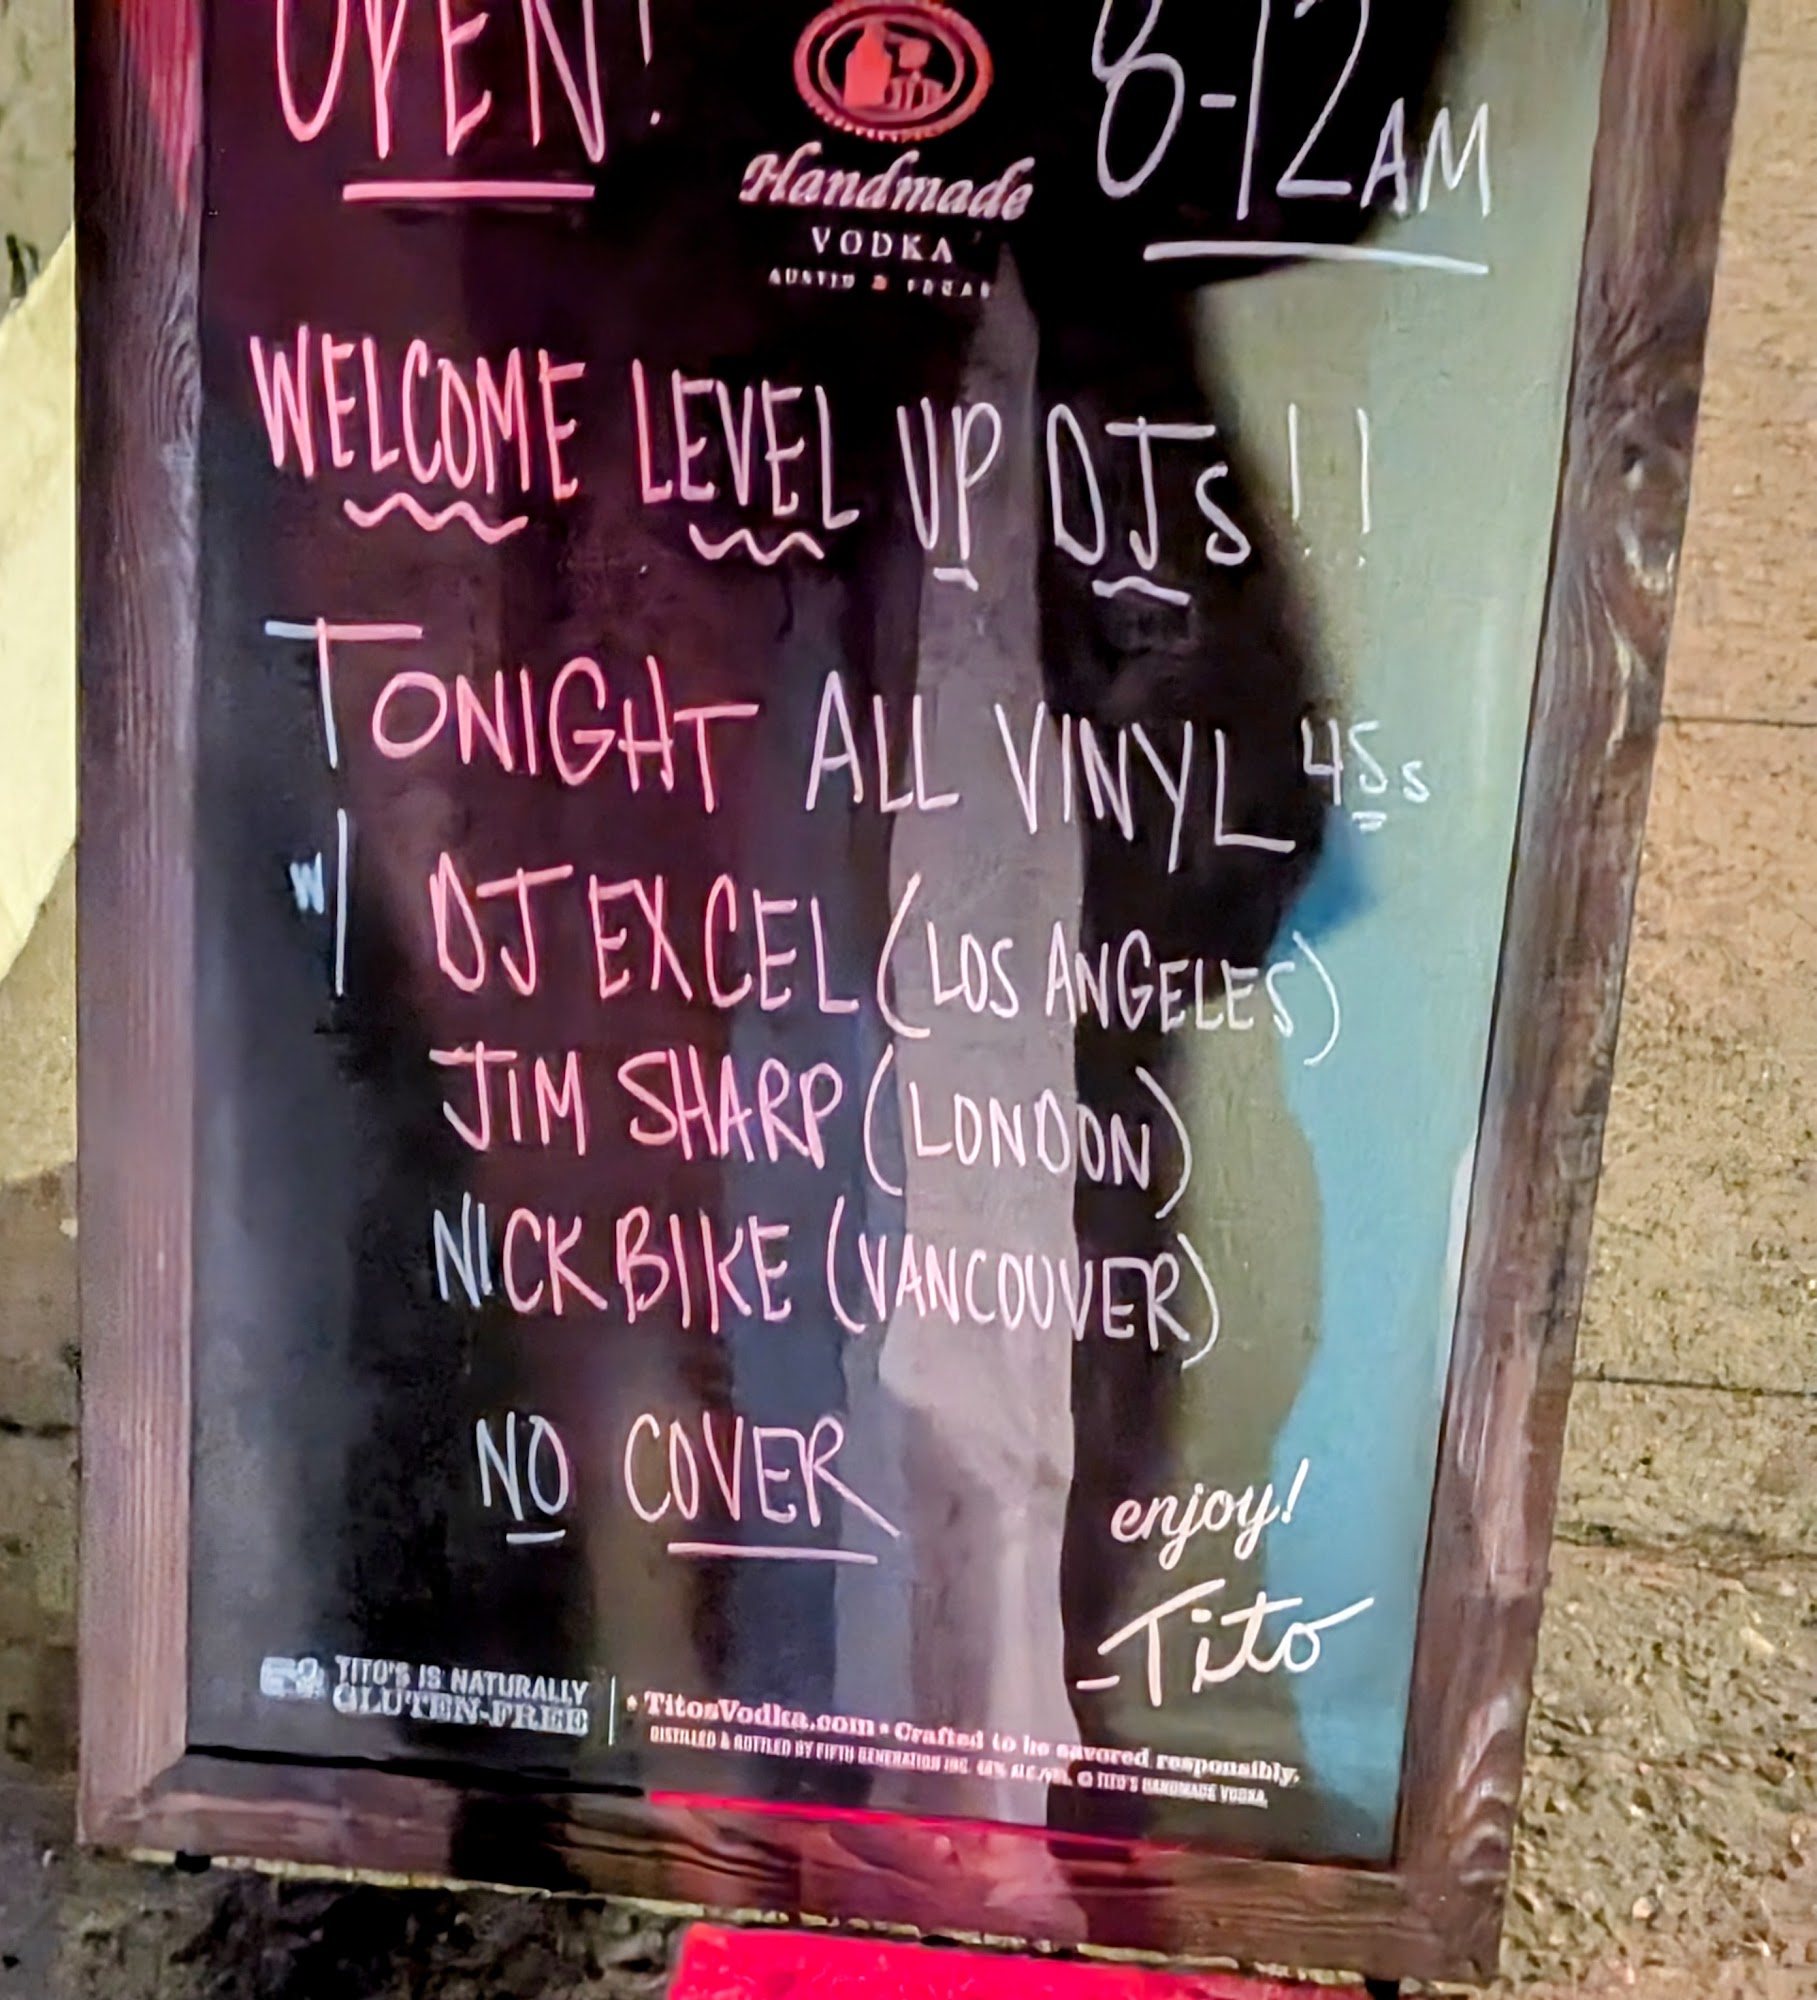 OPEN!
8-12AM
Handmade
VODKA
AUSTIN TEXAS
WELCOME LEVEL UP DJs!!
TONIGHT ALL VINYL 45s
W/ DJ EXCEL (LOS ANGELES)
JIM SHARP (LONDON)
NICK BIKE (VANCOUVER)
NO COVER
enjoy!
-Tito
TITO'S IS NATURALLY
GLUTEN-FREE
TitosVodka.com • Crafted to be savored responsibly.
DISTILLED & BOTTLED BY FIFTH GENERATION INC. 40% ALC/VOL. © TITO'S HANDMADE VODKA.